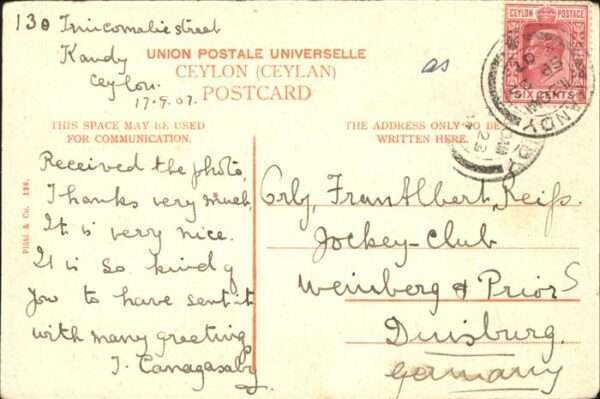 130 Trincomalie street
Kandy
Ceylon.
17.9.07.
UNION POSTALE UNIVERSELLE
CEYLON (CEYLAN)
POSTCARD
as
CEYLON POSTAGE
SIX CENTS
KANDY
THIS SPACE MAY BE USED
FOR COMMUNICATION.
THE ADDRESS ONLY TO BE
WRITTEN HERE.
Received the photo,
Thanks very much,
It is very nice.
It is so kind of
you to have sent it
with many greetings
T. Canagasaby
Plâté & Co.
Frau Albert Reifs.
Jockey-Club
Weinberg & Prior S
Duisburg.
Germany